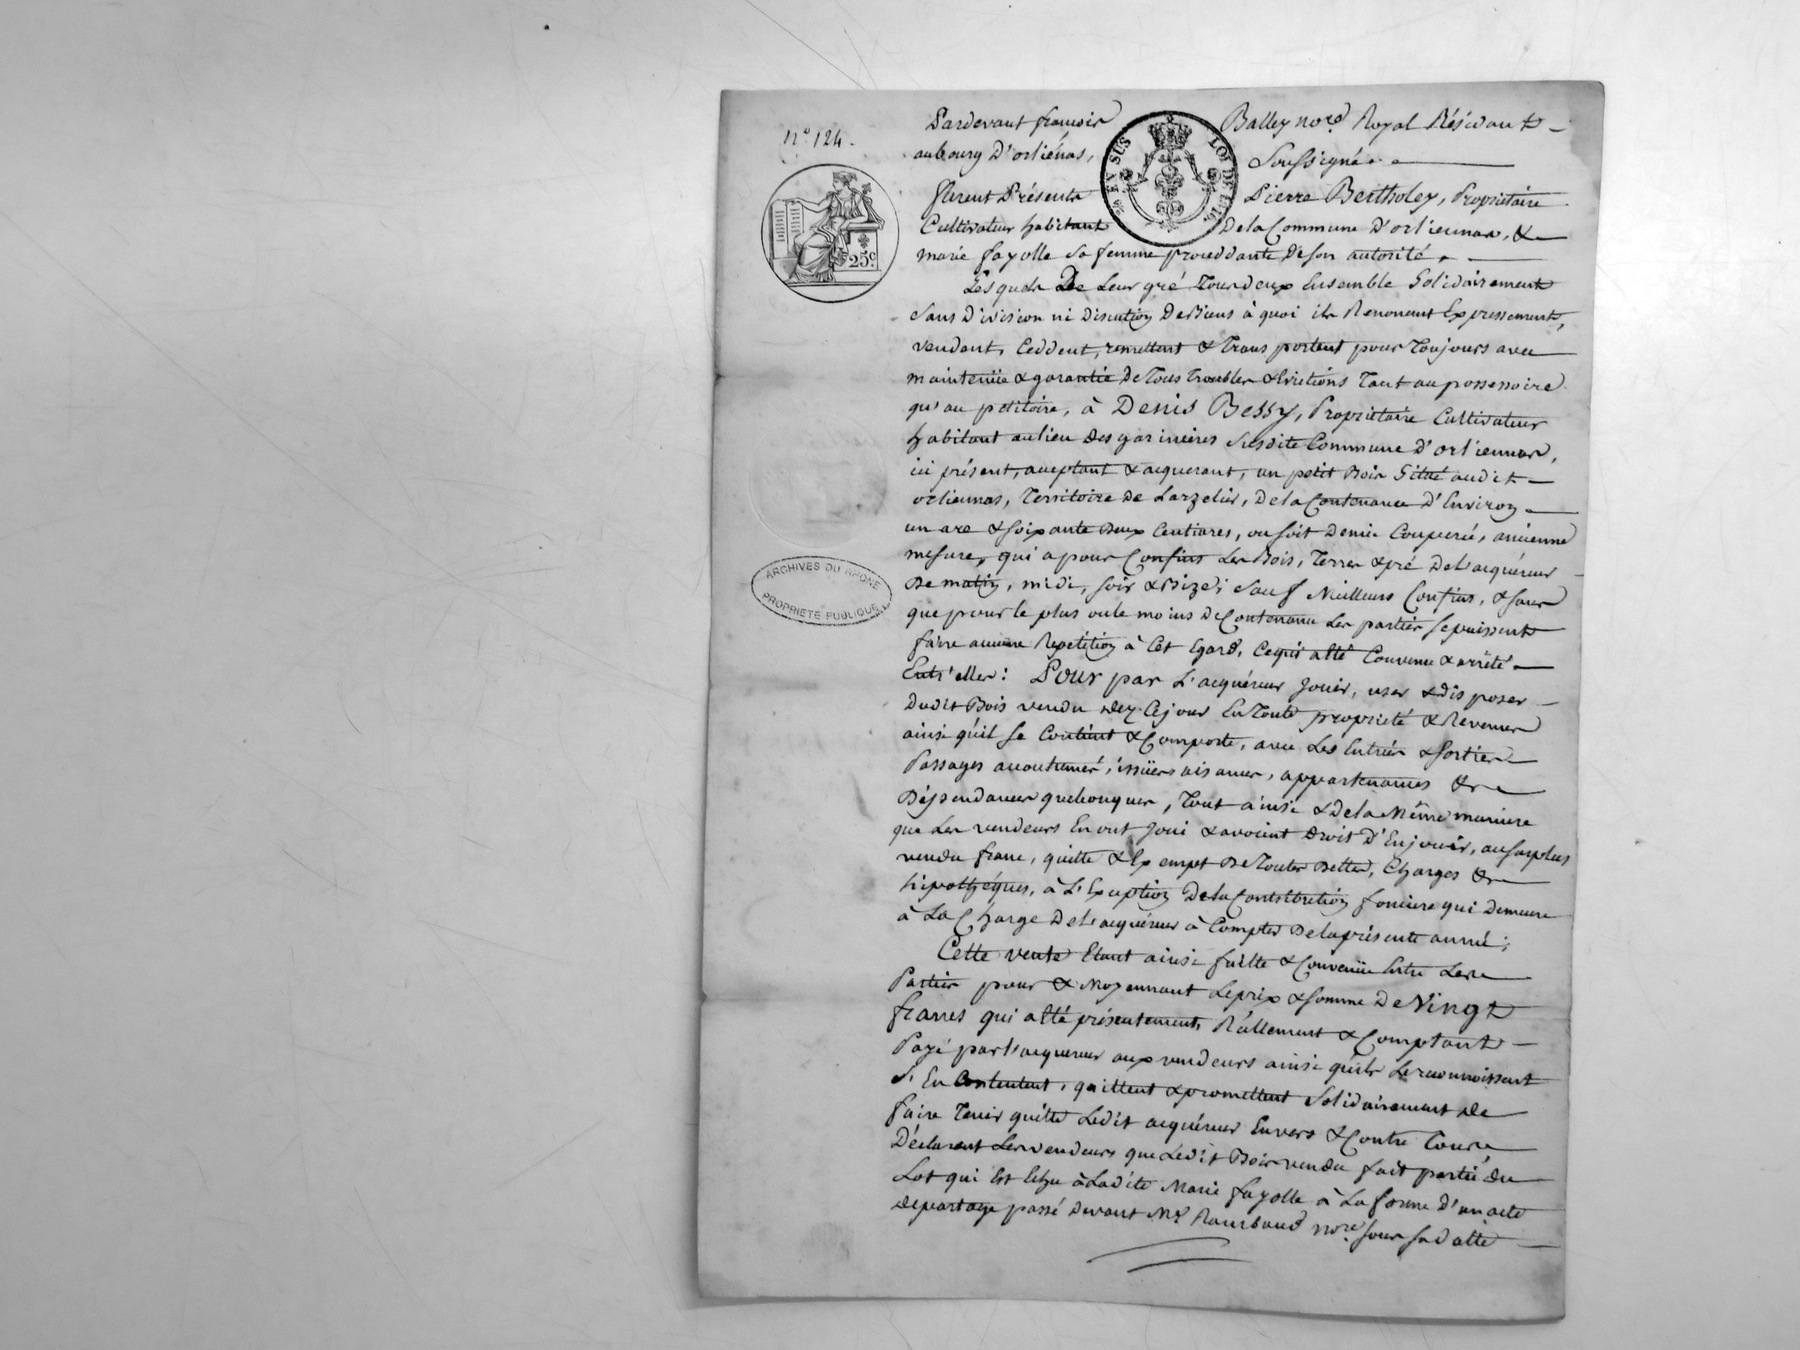 n° 124.
Pardevant françois Balley no.re Royal Résidant
au bourg D'orliénas, Soussigné.
furent Présents Pierre Bertholey, Propriétaire
Cultivateur habitant De la Commune D'orliennas, &
marie fayolle sa femme proceddante de son autorité.
Lesquels De Leur gré Tous deux Ensemble Solidairement
Sans Division ni Discution De Biens à quoi ils Renoncent Expressement,
vendent, Ceddent, remettent & Transportent pour Toujours avec
maintenüe & garantie De Tous Troubles & Evictions Tant au possessoire
qu'au petitoire, à Denis Bessy, Propriétaire Cultivateur
habitant au lieu des garinières Susdite Commune D'orliennas,
ici présent, acceptant & acquerant, un petit Bois Situé audit
orliennas, Territoire De Larzelier, De la Contenance D'Environ
un are & soixante Deux Centiares, ou soit Demie Couperie, ancienne
mesure, qui a pour Confins Les Bois, Terres & pré De l'acquéreur
De matin, midi, soir & Bize; Sauf Meilleurs Confins, & sans
que pour le plus ou le moins De Contenance Les parties se puissent
faire aucune Repétition à Cet Egard, Ce qui a Eté Convenu & arrêté
Entr'elles: Pour par L'acquéreur Jouir, user & disposer
Dudit Bois vendu dez Ce jour En Toute propriété & Revenus
ainsi qu'il se Contient & Comporte, avec Les Entrées & Sorties
Passages accoutumés, issües aisances, appartenances &
Déppendances quelconques, Tout ainsi & De la Même maniere
que Les vendeurs En ont Joui & avoient Droit D'En jouir, au surplus
vendu franc, quitte & Exempt De Toutes Dettes, Charges &
hipothéques, à L'Exception De la Contribution fonciere qui Demeure
à La Charge De l'acquéreur à Compter De la présente année;
Cette vente Etant ainsi faitte & Convenüe Entre Les
Parties pour & Moyennant Le prix & somme De Vingt
francs qui a Eté présentement, Réellement & Comptant
Payé par l'acquereur aux vendeurs ainsi qu'ils Le reconnoissent
S'En Contentent, quittent & promettent Solidairement de
faire Tenir quitte Ledit acquéreur Envers & Contre Tous
Déclarent Les vendeurs que Ledit Bois vendu fait partie du
Lot qui Est Echu à Ladite Marie fayolle à La forme D'un acte
de partage passé Devant M.e Raimbaud no.re sous sa datte
25c.
LOI DE
EN SUS
ARCHIVES DU RHONE
PROPRIETE PUBLIQUE